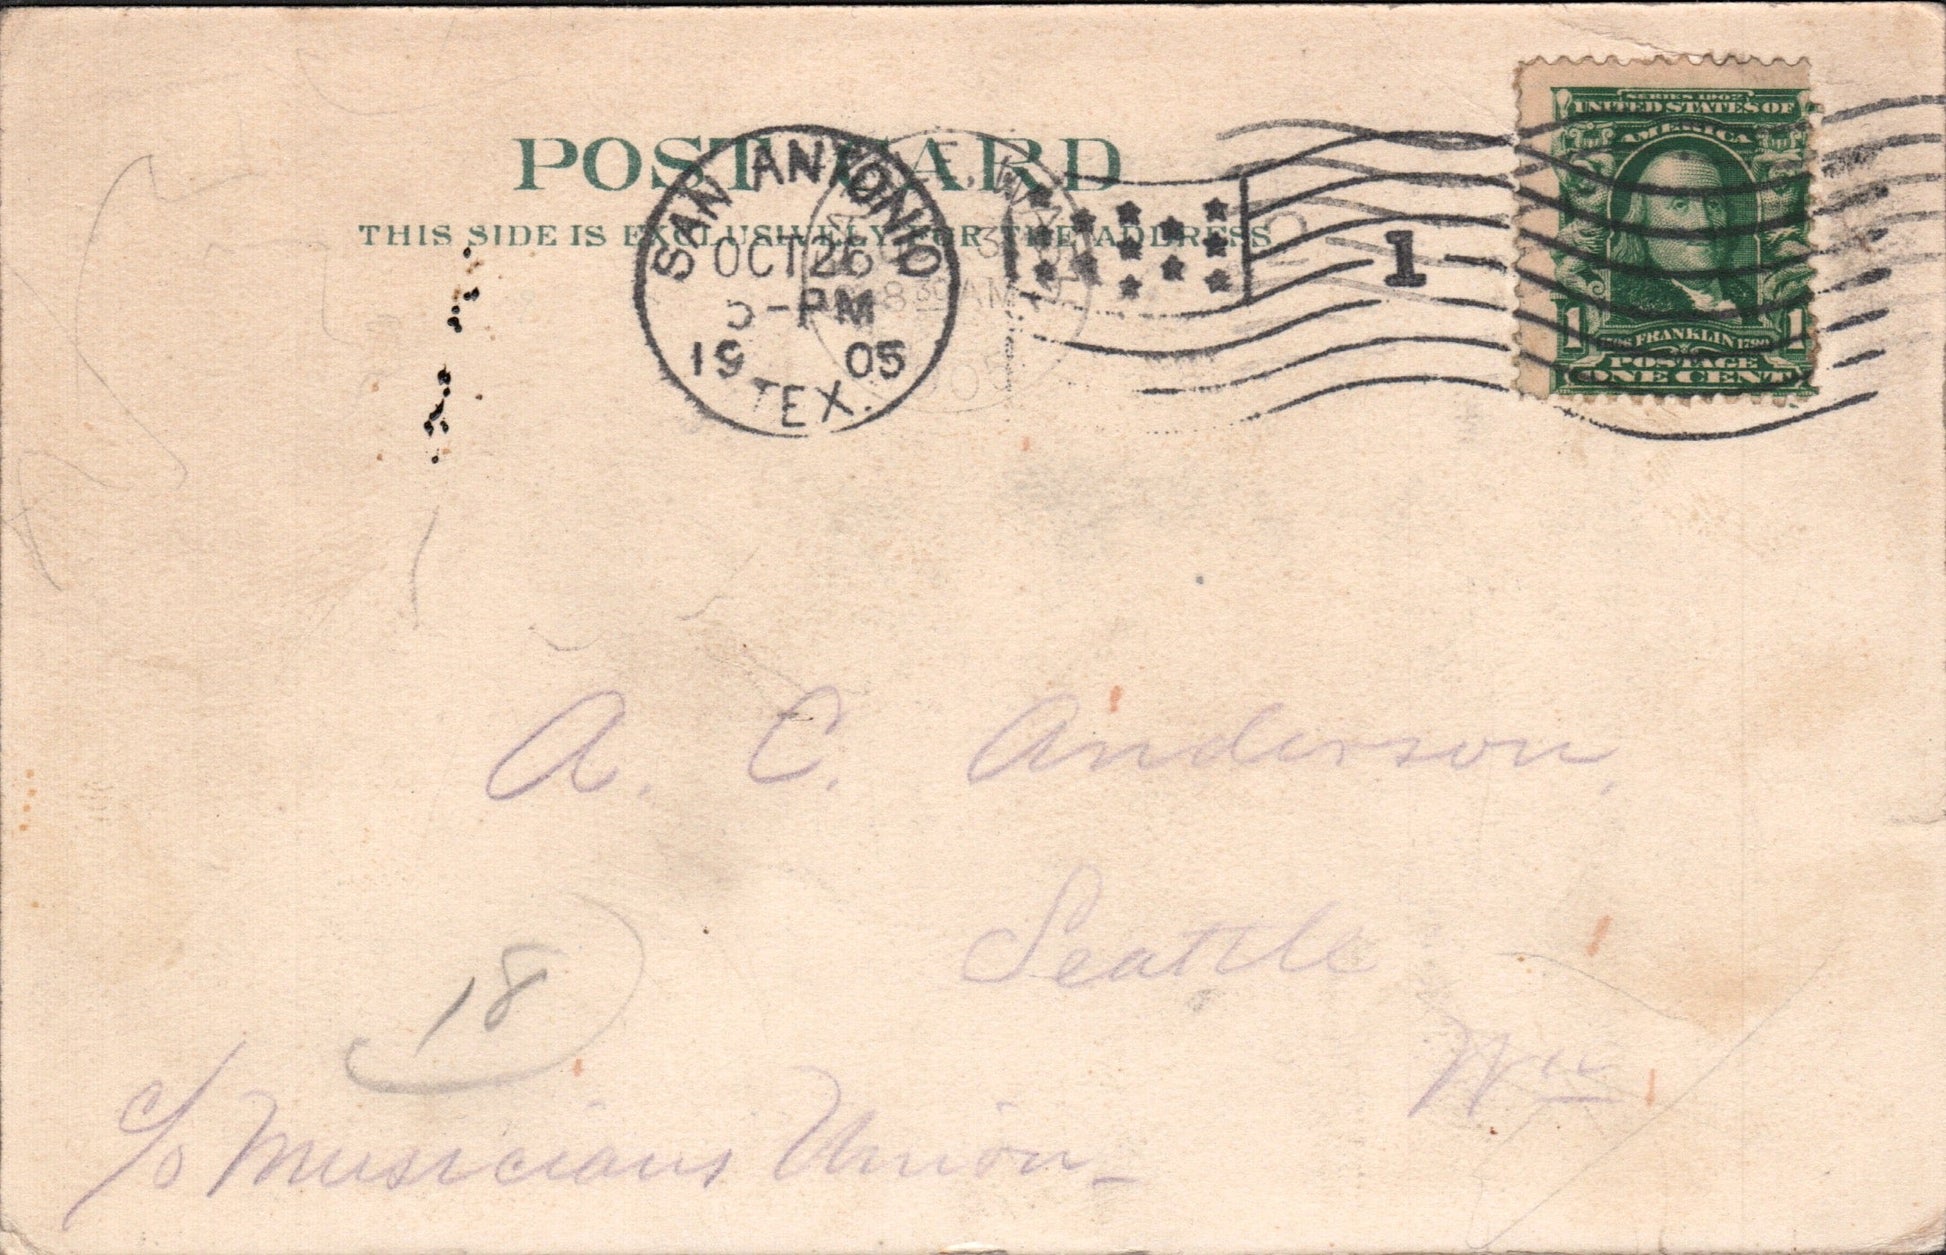 POST CARD
THIS SIDE IS EXCLUSIVELY FOR THE ADDRESS
SAN ANTONIO
OCT 26
5-PM
19 05
TEX.
8 30 AM
05
1
SERIES 1902
UNITED STATES OF
AMERICA
1 FRANKLIN 1790 1
POSTAGE
ONE CENT
A. C. Anderson,
Seattle
Wn
18
c/o Musicians Union-